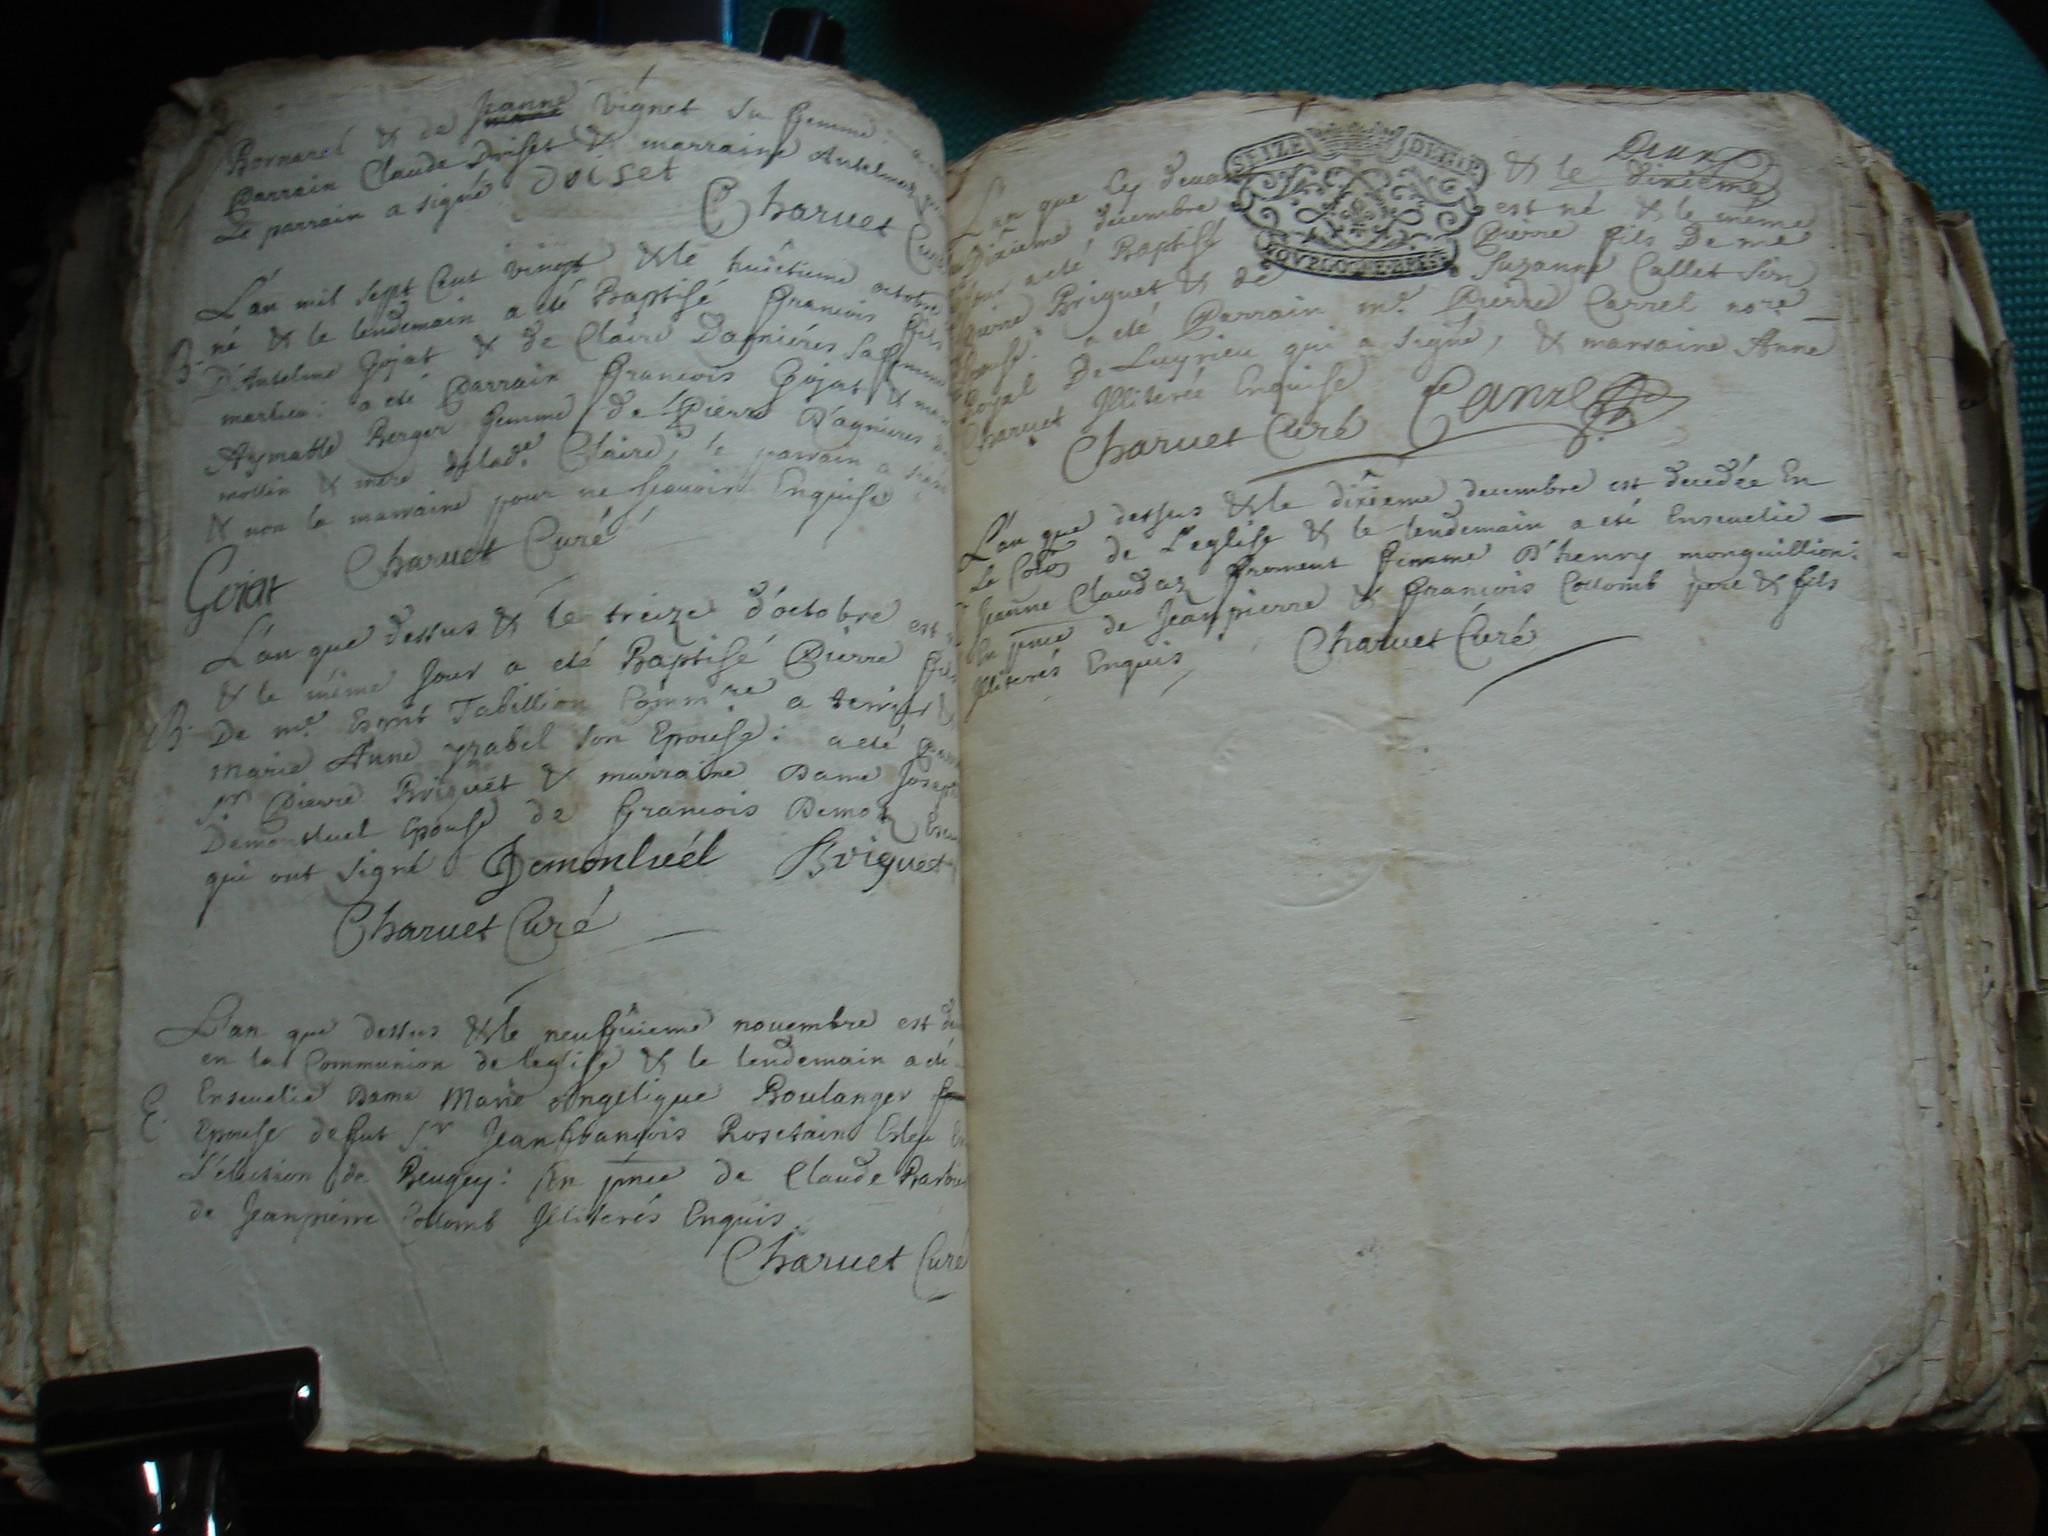 Bornarel & de Jeanne Vignet sa femme
Parrain Claude Doiset & marraine Antelmaz
Le parrain a signé Doiset
Charvet Curé
L'an mil sept Cent vingt & le huictieme octobre
né & le lendemain a eté Baptisé francois fils
B. D'Antelme Gojat & de Claire Dagniéres sa femme
a eté Parrain francois Gojat &
Aymable Berger femme de Pierre Dagnieres
mollin & mere de lade Claire, le parrain a signé
& non la marraine pour ne scavoir Enquise
Gojat Charvet Curé
L'an que dessus & le treize d'octobre est
& le même Jour a eté Baptisé Pierre fils
B. De me Esprit Tabillion Commre a terrier &
Marie Anne yzabel son Epouse: a eté
sr Pierre Briguet & marraine Dame
Demontluel Epouse de francois Demoz
qui ont signé Demontluél Briguet
Charvet Curé
L'an que dessus & le neufvieme novembre est
en la Communion de leglise & le lendemain a eté
E. Ensevelie Dame Marie Angelique Boulanger
Epouse de fut sr Jean francois Rosetain Esleu
L'election de Beugey: En pnce de Claude
de Jeanpierre Collomb Illiterés Enquis.
Charvet Curé
SEIZE DENIE
BOURGOGNE BRESSE
L'an que Cy devant & le Dixieme
Dixieme decembre est né & le même
Jour a eté Baptisé Pierre fils De me
Pierre Briguet & de Suzanne Callet son
Epouse: a eté Parrain me Pierre Carrel nore
Royal De Luyrieu qui a signé, & marraine Anne
Charvet Illiterée Enquise
Charvet Curé Carrel
L'an que dessus & le dixieme decembre est decedée En
Le Corps de L'eglise & le lendemain a eté Ensevelie
Jeanne Claudaz froment femme D'henry monguillion:
En pnce de Jeanpierre & francois Collomb pere & fils
Illiterés Enquis Charvet Curé